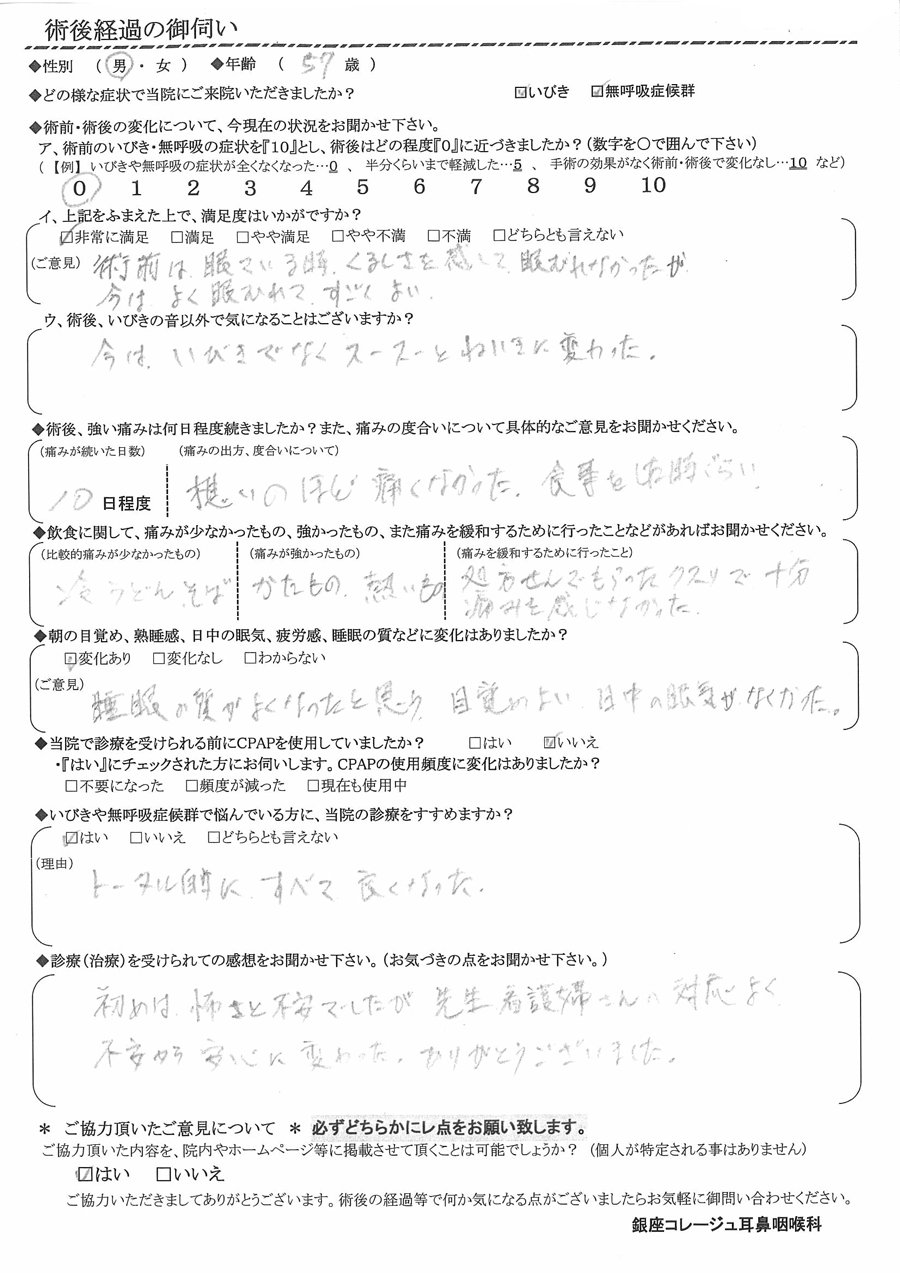 術後経過の御伺い
◆性別 （ 男 ・ 女 ） ◆年齢 （ 57 歳 ）
◆どの様な症状で当院にご来院いただきましたか？ ☑いびき ☑無呼吸症候群
◆術前・術後の変化について、今現在の状況をお聞かせ下さい。
ア、術前のいびき・無呼吸の症状を『10』とし、術後はどの程度『0』に近づきましたか？（数字を○で囲んで下さい）
（ 【例】 いびきや無呼吸の症状が全くなくなった…0 、 半分くらいまで軽減した…5 、 手術の効果がなく術前・術後で変化なし…10 など）
0 1 2 3 4 5 6 7 8 9 10
イ、上記をふまえた上で、満足度はいかがですか？
☑非常に満足 □満足 □やや満足 □やや不満 □不満 □どちらとも言えない
（ご意見） 術前は、眠ている時、くるしさを感じて、眠むれなかったが
今は よく眠むれて、すごくよい。
ウ、術後、いびきの音以外で気になることはございますか？
今は、いびきでなくスースーとねいきに変わった。
◆術後、強い痛みは何日程度続きましたか？また、痛みの度合いについて具体的なご意見をお聞かせください。
（痛みが続いた日数） （痛みの出方、度合いについて）
10 日程度 想いのほど 痛くなかった。食事をする時ぐらい。
◆飲食に関して、痛みが少なかったもの、強かったもの、また痛みを緩和するために行ったことなどがあればお聞かせください。
（比較的痛みが少なかったもの） （痛みが強かったもの） （痛みを緩和するために行ったこと）
冷うどん、そば かたもの、熱いもの 処方せんでもらったクスリで十分
痛みを感じなかった。
◆朝の目覚め、熟睡感、日中の眠気、疲労感、睡眠の質などに変化はありましたか？
☑変化あり □変化なし □わからない
（ご意見） 睡眠の質がよくなったと思う。目覚めよい、日中の眠気がなくなった。
◆当院で診療を受けられる前にCPAPを使用していましたか？ □はい ☑いいえ
・『はい』にチェックされた方にお伺いします。CPAPの使用頻度に変化はありましたか？
□不要になった □頻度が減った □現在も使用中
◆いびきや無呼吸症候群で悩んでいる方に、当院の診療をすすめますか？
☑はい □いいえ □どちらとも言えない
（理由）
トータル的に、すべて 良くなった。
◆診療（治療）を受けられての感想をお聞かせ下さい。（お気づきの点をお聞かせ下さい。）
初めは、怖さと不安でしたが 先生 看護婦さんの対応よく
不安から安心に変わった。ありがとうございました。
＊ ご協力頂いたご意見について ＊ 必ずどちらかにレ点をお願い致します。
ご協力頂いた内容を、院内やホームページ等に掲載させて頂くことは可能でしょうか？ （個人が特定される事はありません）
☑はい □いいえ
ご協力いただきましてありがとうございます。術後の経過等で何か気になる点がございましたらお気軽に御問い合わせください。
銀座コレージュ耳鼻咽喉科